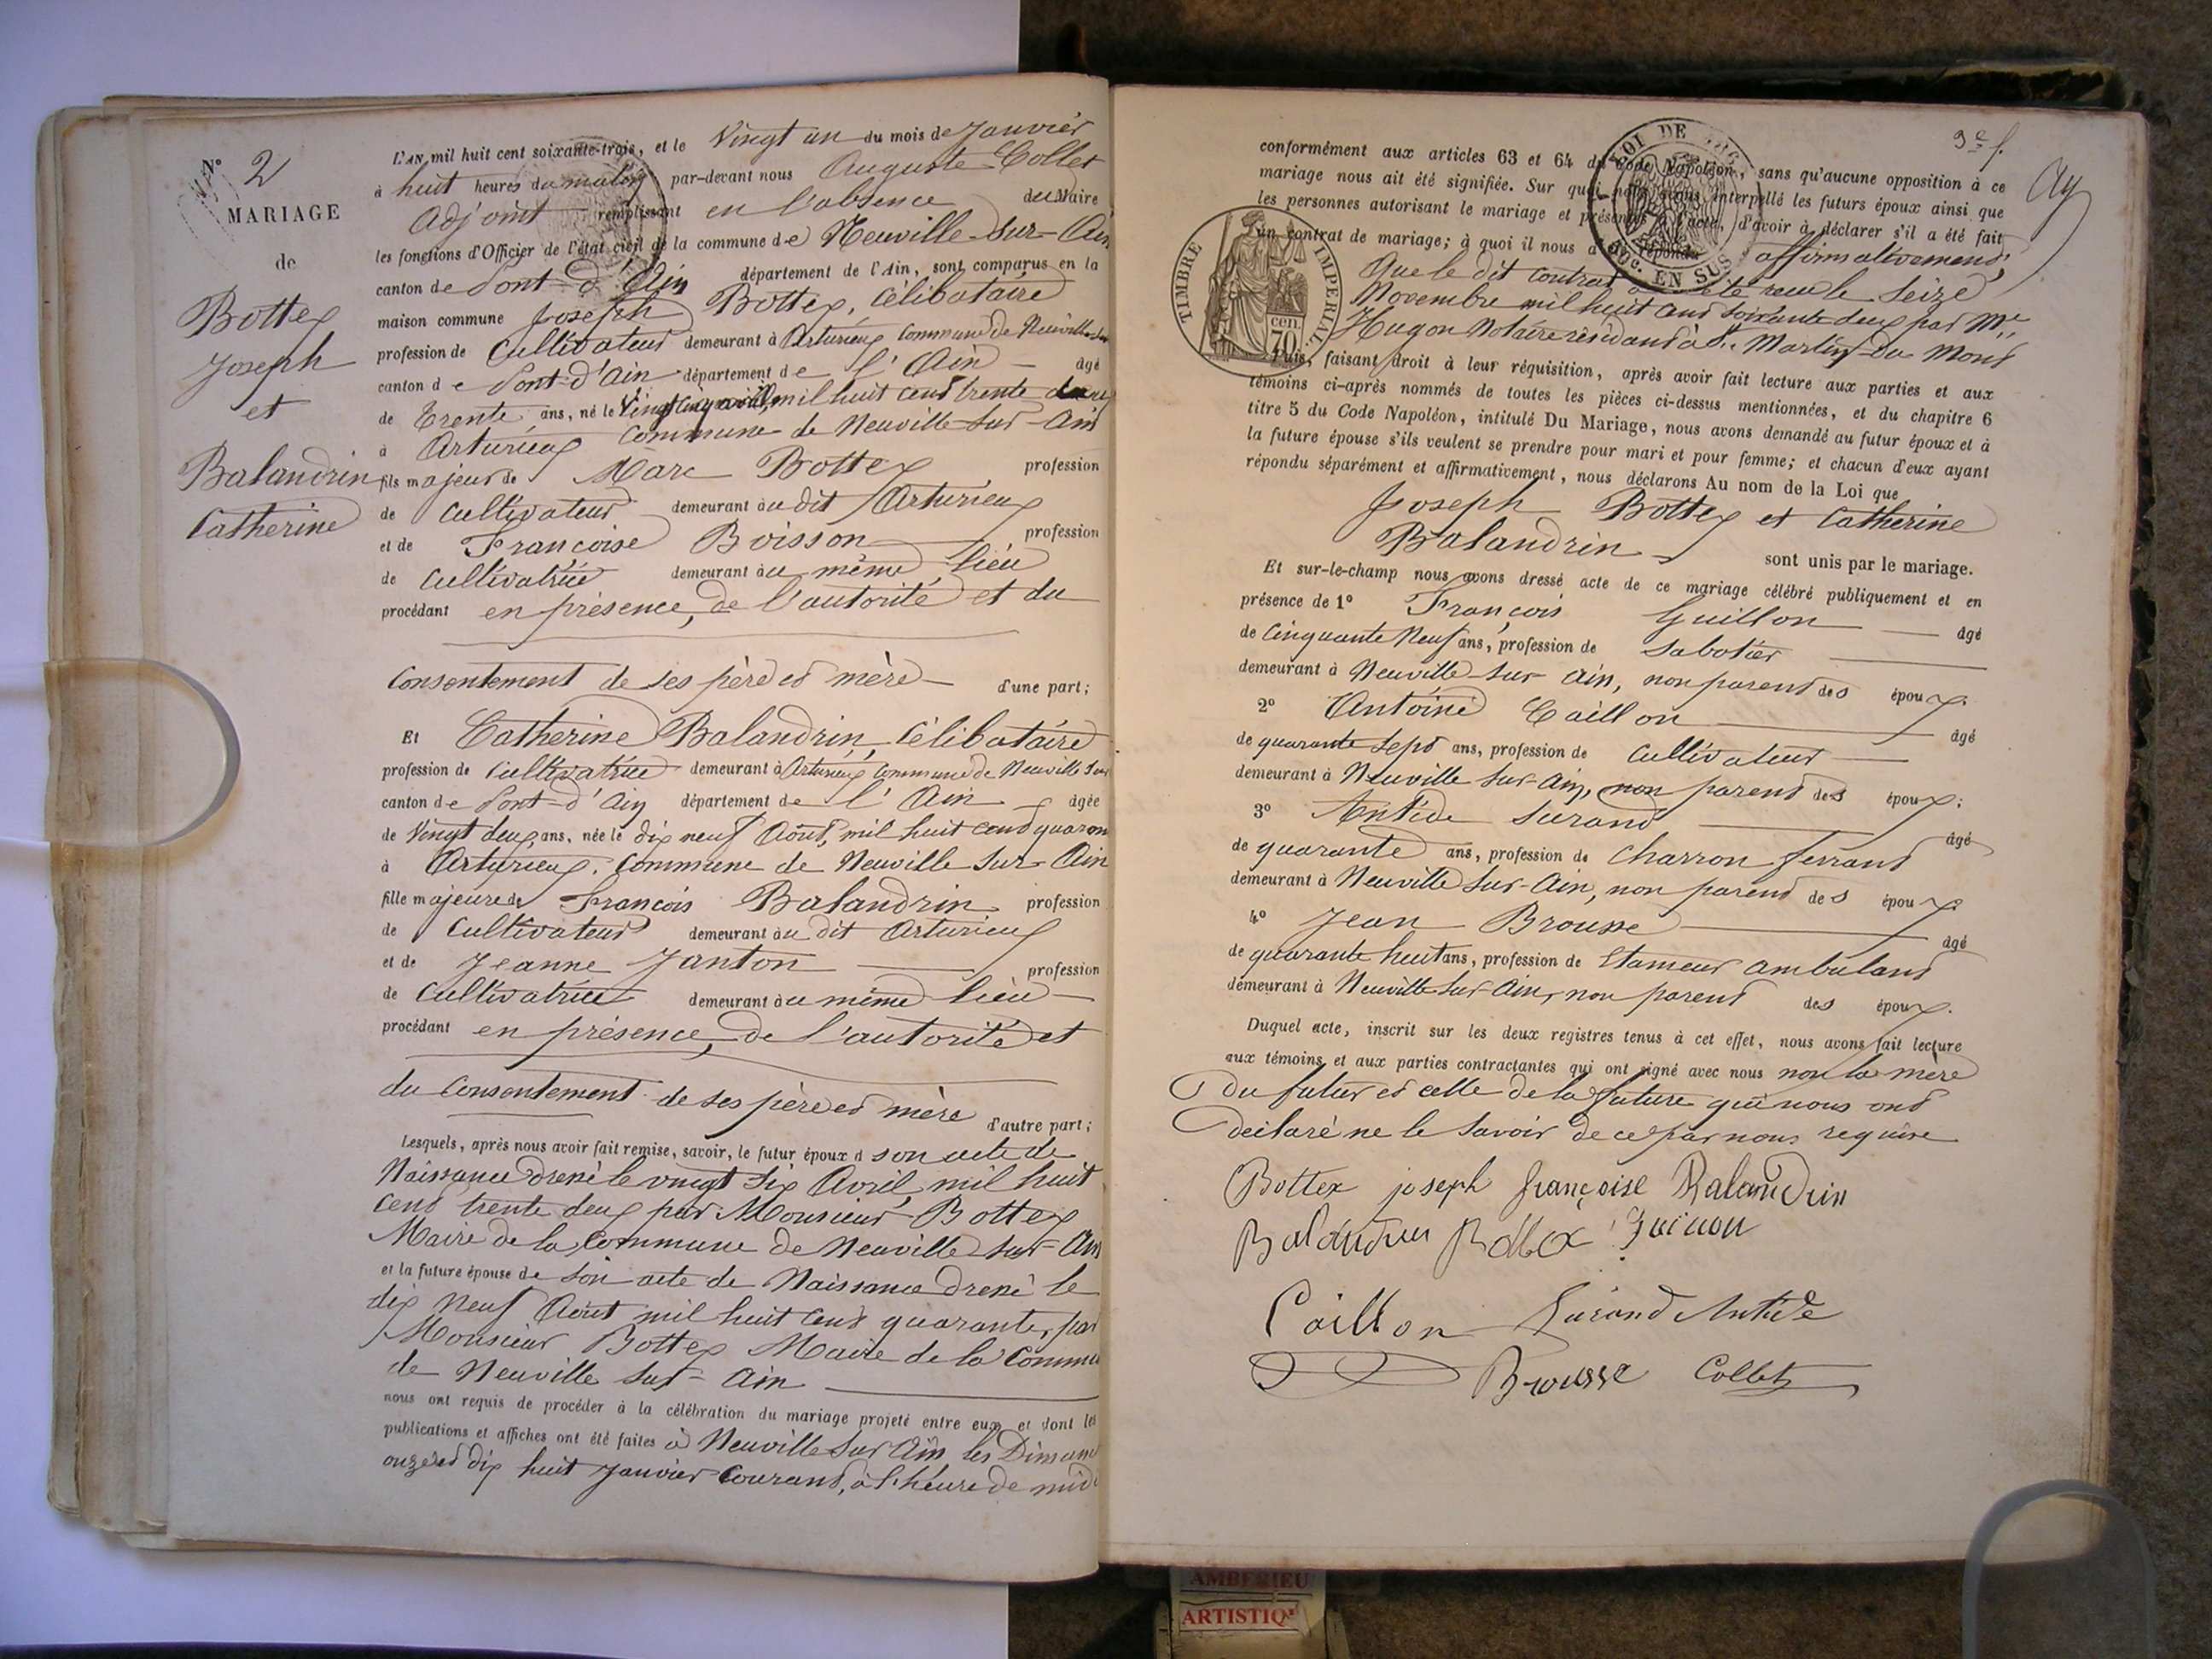 N° 2
MARIAGE
de
Bottex
Joseph
et
Balandrin
Catherine
L'AN mil huit cent soixante-trois, et le Vingt un du mois de Janvier
à huit heures du matin par-devant nous Auguste Collet
adjoint remplissant en l'absence du Maire
les fonctions d'Officier de l'état civil de la commune de Neuville-sur-Ain
canton de Pont-d'Ain département de l'Ain, sont comparus en la
maison commune Joseph Bottex, Célibataire
profession de Cultivateur demeurant à Arturieux Commune de Neuville sur
canton de Pont-d'Ain département de l'Ain âgé
de trente ans, né le Vingt cinq avril mil huit cent trente deux
à Arturieux Commune de Neuville-sur-Ain
fils majeur de Marc Bottex profession
de Cultivateur demeurant au dit Arturieux
et de Françoise Boisson profession
de Cultivatrice demeurant au même lieu
procédant en présence, de l'autorité et du
Consentement de ses père et mère d'une part;
Et Catherine Balandrin, Célibataire
profession de Cultivatrice demeurant à Arturieux Commune de Neuville Sur
canton de Pont-d'Ain département de l'Ain âgée
de Vingt deux ans, née le dix neuf Août, mil huit cent quaran
à Arturieux, Commune de Neuville sur-Ain
fille majeure de François Balandrin profession
de Cultivateur demeurant au dit Arturieux
et de Jeanne Janton profession
de Cultivatrice demeurant au même lieu
procédant en présence, de l'autorité et
du Consentement de ses père et mère d'autre part;
Lesquels, après nous avoir fait remise, savoir, le futur époux d son acte de
Naissance dressé le vingt six Avril, mil huit
cent trente deux par Monsieur Bottex
Maire de la Commune de Neuville sur-Ain
et la future épouse de son acte de Naissance dressé le
dix neuf Août mil huit cent quarante, par
Monsieur Bottex Maire de la Commu
de Neuville sur-Ain
nous ont requis de procéder à la célébration du mariage projeté entre eux et dont les
publications et affiches ont été faites à Neuville sur Ain les Diman
onze et dix huit Janvier Courant, à l'heure de midi
3e f.
conformément aux articles 63 et 64 du Code Napoléon, sans qu'aucune opposition à ce
mariage nous ait été signifiée. Sur quoi nous avons interpellé les futurs époux ainsi que
les personnes autorisant le mariage et présentes à l'acte, d'avoir à déclarer s'il a été fait
un contrat de mariage; à quoi il nous a été répondu affirmativement,
Que le dit contrat a été reçu le Seize
Novembre mil huit cent soixante deux par Me
Hugon Notaire résidant à St. Martin-du Mont
TIMBRE IMPERIAL
70 cen.
EN SUS
Puis, faisant droit à leur réquisition, après avoir fait lecture aux parties et aux
témoins ci-après nommés de toutes les pièces ci-dessus mentionnées, et du chapitre 6
titre 5 du Code Napoléon, intitulé Du Mariage, nous avons demandé au futur époux et à
la future épouse s'ils veulent se prendre pour mari et pour femme; et chacun d'eux ayant
répondu séparément et affirmativement, nous déclarons Au nom de la Loi que
Joseph Bottex et Catherine
Balandrin sont unis par le mariage.
Et sur-le-champ nous avons dressé acte de ce mariage célébré publiquement et en
présence de 1° François Guillon âgé
de Cinquante Neuf ans, profession de Sabotier
demeurant à Neuville sur Ain, non parent des époux.
2° Antoine Caillon âgé
de quarante sept ans, profession de Cultivateur
demeurant à Neuville sur-Ain, non parent des époux;
3° Antide Surand âgé
de quarante ans, profession de Charron ferrant
demeurant à Neuville sur-Ain, non parent des époux.
4° Jean Brousse âgé
de quarante huit ans, profession de Etameur ambulant
demeurant à Neuville sur-Ain, non parent des époux.
Duquel acte, inscrit sur les deux registres tenus à cet effet, nous avons fait lecture
aux témoins et aux parties contractantes qui ont signé avec nous non la mère
du futur et celle de la future qui nous ont
déclaré ne le Savoir de ce par nous requise
Bottex joseph françoise Balandrin
Balandrin Bottex
Caillon Surand Antide
Brousse Collet
AMBERIEU
ARTISTIQ